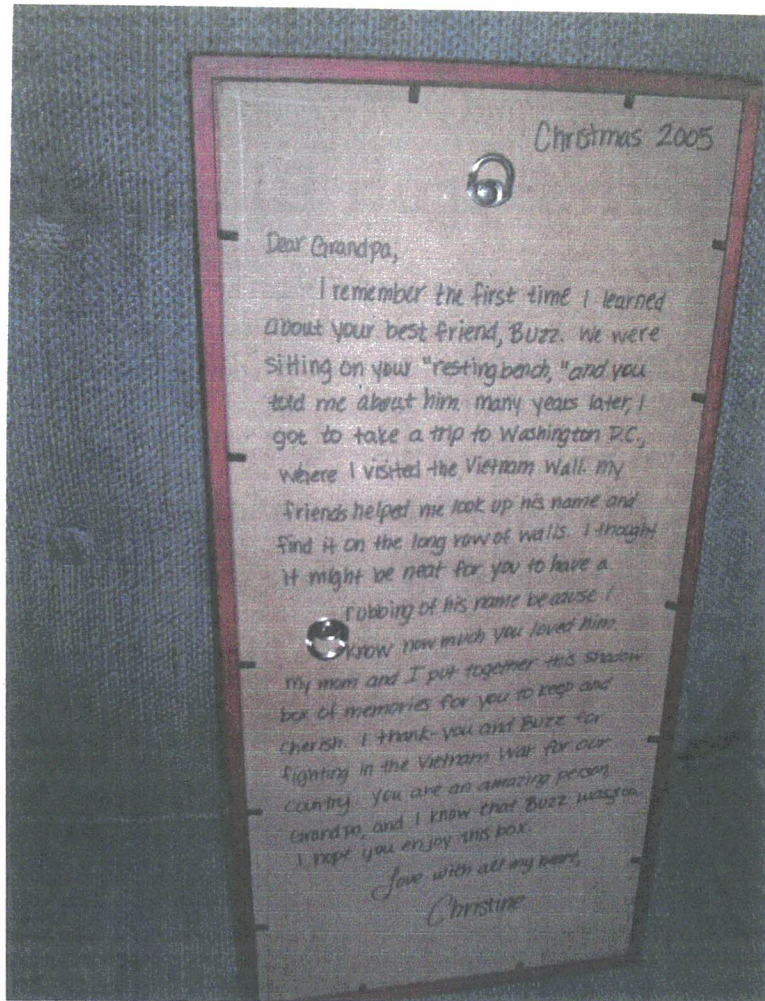 Christmas 2005
Dear Grandpa,
I remember the first time I learned
about your best friend, Buzz. We were
sitting on your "resting bench," and you
told me about him. many years later, I
got to take a trip to Washington D.C.,
where I visited the Vietnam Wall. my
friends helped me look up his name and
find it on the long row of walls. I thought
it might be neat for you to have a
rubbing of his name because I
know how much you loved him.
my mom and I put together this shadow
box of memories for you to keep and
cherish. I thank-you and Buzz for
fighting in the Vietnam War for our
country. You are an amazing person
Grandpa, and I know that Buzz was too.
I hope you enjoy this box.
Love with all my heart,
Christine